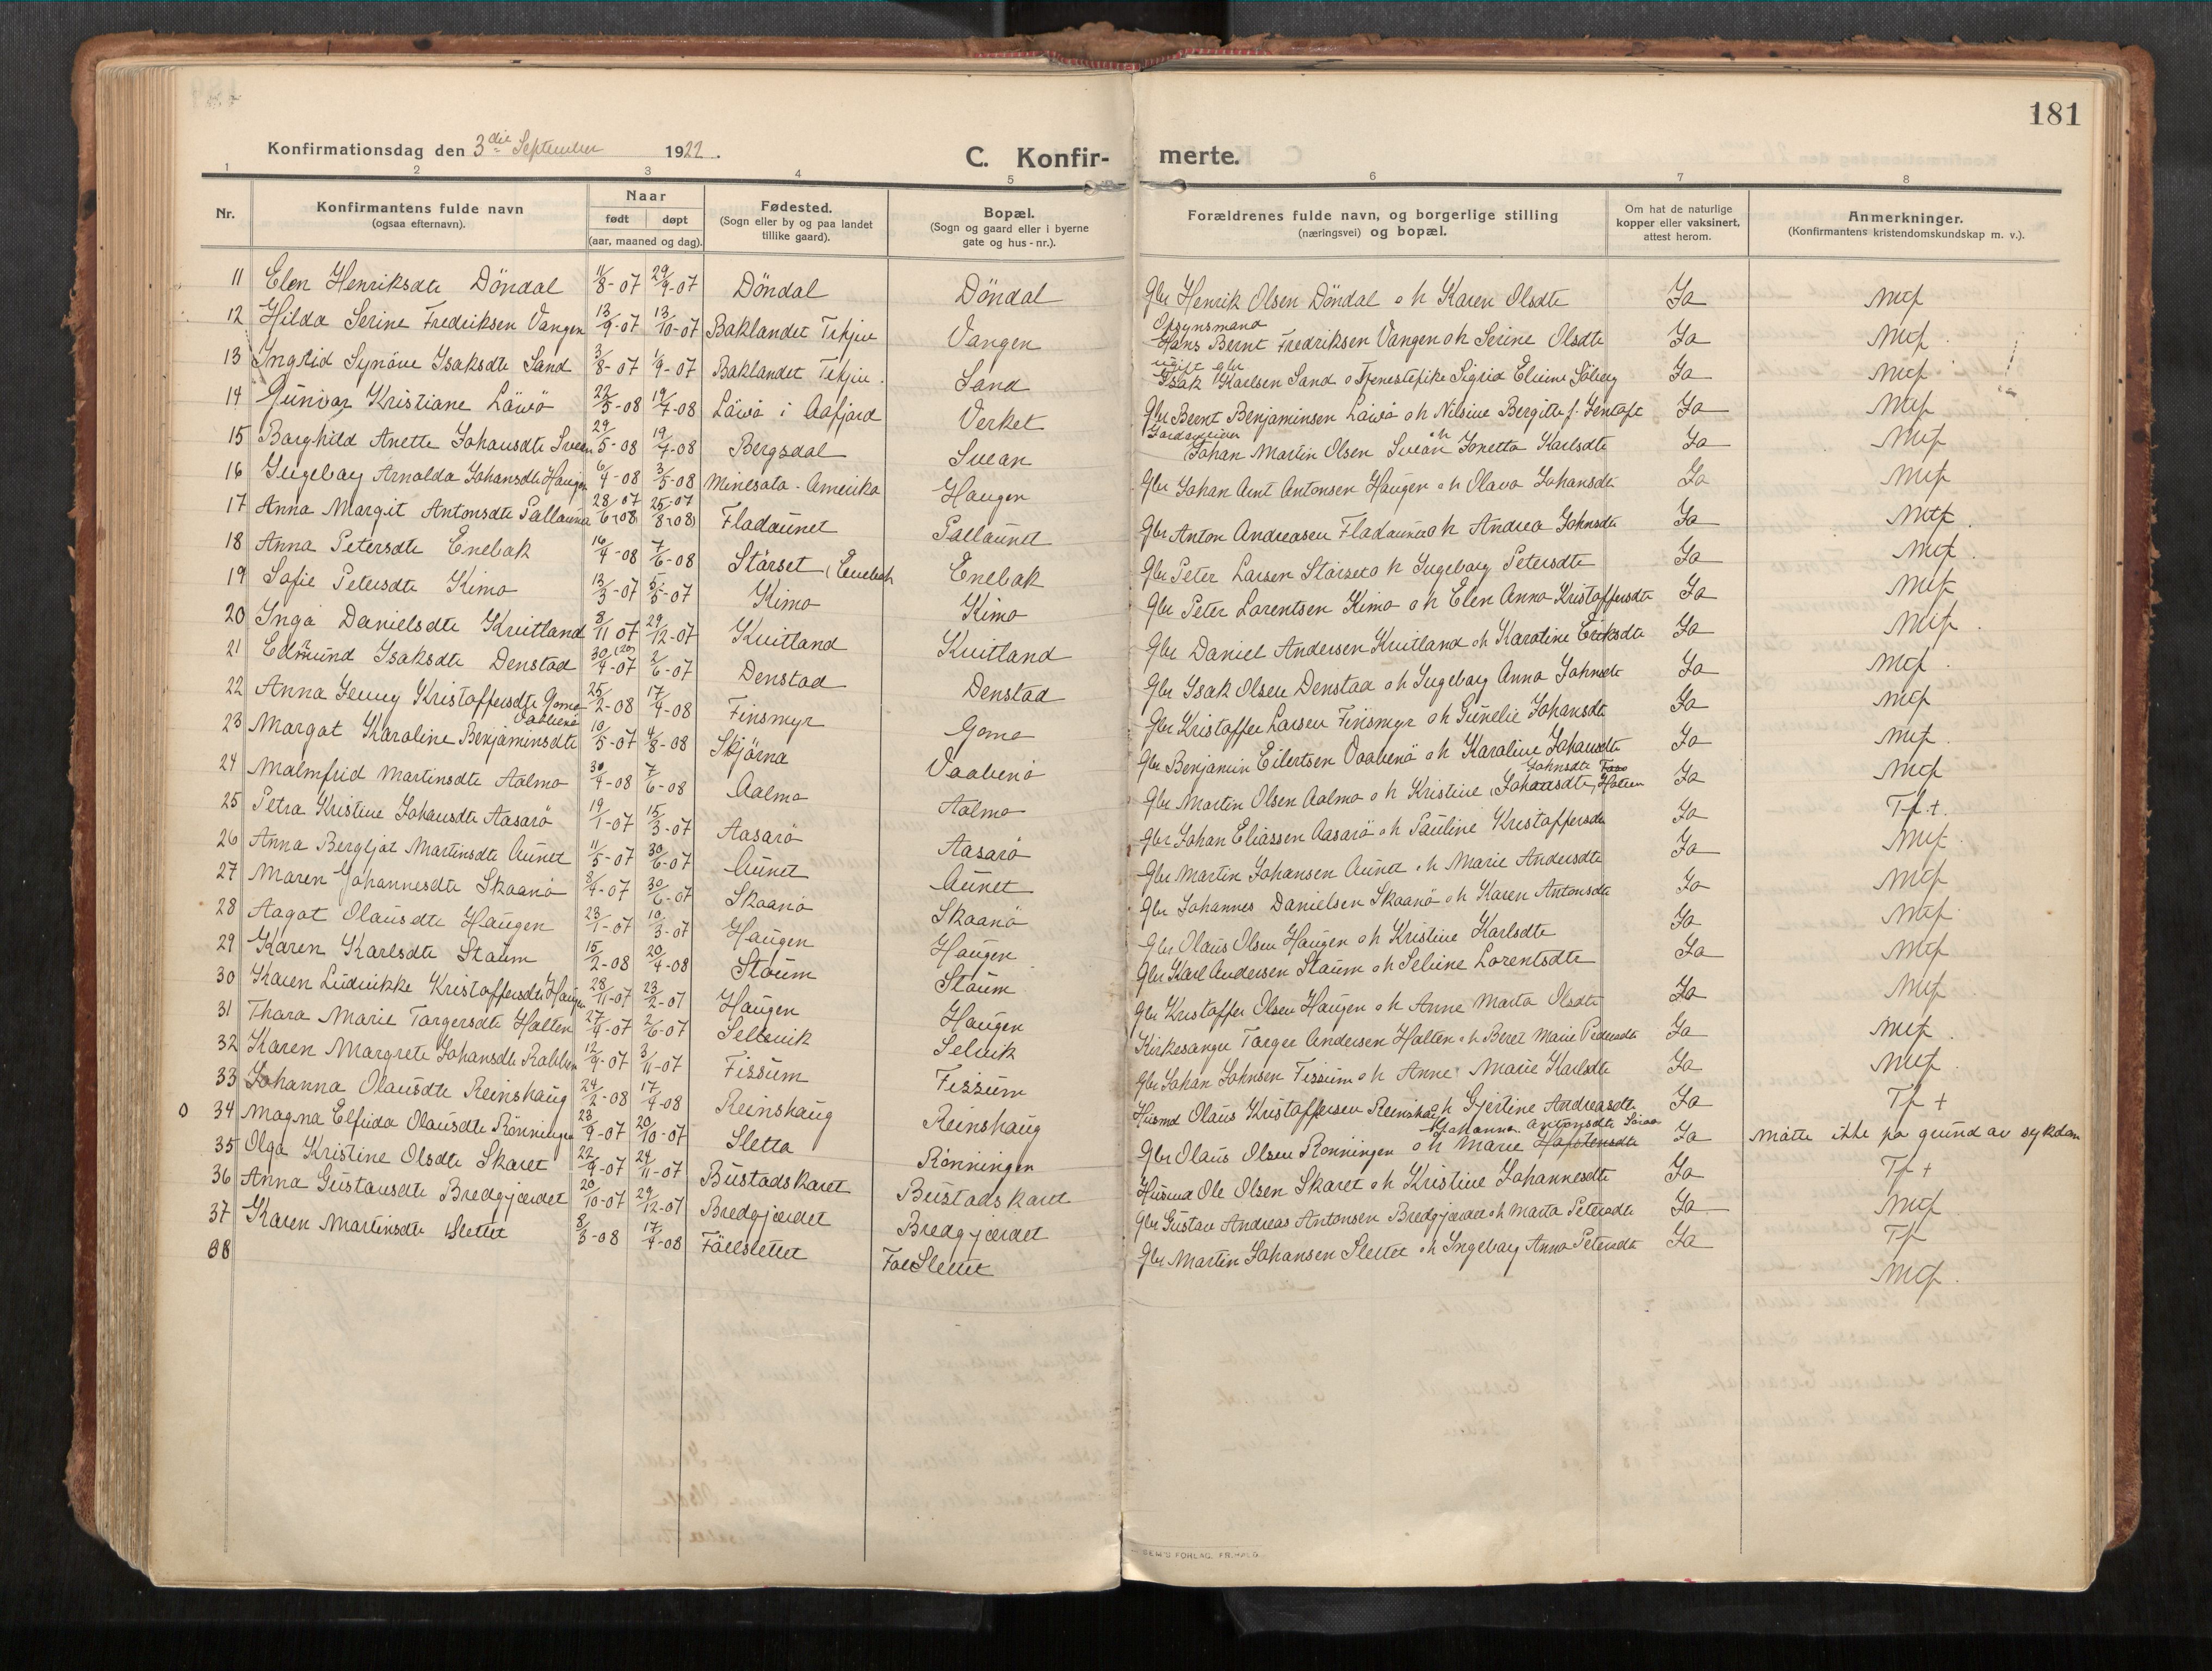 181
Konfirmationsdag den 3die September 1922.
C. Konfir- merte.
1 2 3 4 5 6 7 8
Nr.
Konfirmantens fulde navn
(ogsaa efternavn).
Naar
født døpt
(aar, maaned og dag).
Fødested.
(Sogn eller by og paa landet
tillike gaard).
Bopæl.
(Sogn og gaard eller i byerne
gate og hus-nr.).
Forældrenes fulde navn, og borgerlige stilling
(næringsvei) og bopæl.
Om hat de naturlige
kopper eller vaksinert,
attest herom.
Anmerkninger.
(Konfirmantens kristendomskundskap m. v.).
11 Elen Henriksdte Döndal 11/8-07 29/9-07 Döndal Döndal Gbr Henrik Olsen Döndal o h Karen Olsdte Ja Mcf
12 Hilda Serine Fredriksen Vangen 13/9-07 13/10-07 Baklandet Vangen Opsynsmand Hans Bernt Fredriksen Vangen o h Serine Olsdte Ja Mcf.
13 Ingrid Synöve Isaksdte Sand 3/8-07 1/9-07 Baklandet Sand ugift Gbr Isak Karlsen Sand o Tjenestepike Sigrid Ja Mcf
14 Gunvor Kristiane Lävö 22/5-08 19/7-08 Lävö i Aafjord Verket Gbr Bernt Benjaminsen Lävö o h Nilsine Bergitte f. Ja Mcf
15 Borghild Anette Johansdte Svean 29/5-08 19/7-08 Bergsdal Svean Johan Martin Olsen Svean o h Jonetta Karlsdte Ja Mcf
16 Ingeborg Arnolda Johansdte Haugen 6/4-08 3/5-08 Minesota - Amerika Haugen Gbr Johan Arnt Antonsen Haugen o h Olava Johansdte Ja Mcf
17 Anna Margit Antonsdte Pallauna 28/6 07 (08) 25/8 07 (08) Fladaunet Pallaunet Gbr Anton Andreasen Fladaunet o h Andrea Johnsdte Ja Mcf.
18 Anna Petersdte Enebak 16/4-08 7/6-08 Störset, Enebak Enebak Gbr Peter Larsen Störset o h Ingeborg Petersdte Ja Mcf.
19 Sofie Petersdte Kimo 13/3-07 5/5-07 Kimo Kimo Gbr Peter Lorentsen Kimo o h Elen Anna Kristoffersdte Ja Mcf
20 Inga Danielsdte Kvitland 8/11 07 29/12-07 Kvitland Kvitland Gbr Daniel Andersen Kvitland o h Karoline Eriksdte Ja Mcf.
21 Edmund Isaksdte Denstad 30/4-07 2/6-07 Denstad Denstad Gbr Isak Olsen Denstad o h Ingeborg Anna Johnsdte Ja Mcf.
22 Anna Jenny Kristoffersdte Gomo 25/2-08 17/4-08 Finsmyr Gomo Gbr Kristoffer Larsen Finsmyr o h Gunelie Johansdt Ja Mcf
23 Margot Karoline Benjaminsdte Vaabenö 10/5-07 4/8-08 Skjörna Vaabenö Gbr Benjamin Eilertsen Vaabenö o h Karoline Johansdte Ja Mcf.
24 Malmfrid Martinsdte Aalmo 30/4-08 7/6-08 Aalmo Aalmo Gbr Martin Olsen Aalmo o h Kristine Johansdte, Johnsdte Ja Mcf
25 Petra Kristine Johansdte Aasarö 19/1-07 15/3-07 Aasarö Aasarö Gbr Johan Eliassen Aasarö o h Pauline Kristoffersdte Ja Tf +.
26 Anna Bergljot Martinsdte Aunet 11/5-07 30/6-07 Aunet Aunet Gbr Martin Johansen Aunet o h Marie Andersdte Ja Mcf.
27 Maren Johannesdte Skaanö 8/4-07 30/6-07 Skaanö Skaanö Gbr Johannes Danielsen Skaanö o h Karen Antonsdte Ja Mcf
28 Aagot Olausdte Haugen 23/1-07 10/3-07 Haugen Haugen Gbr Olaus Olsen Haugen o h Kristine Karlsdte Ja Mcf.
29 Karen Karlsdte Staum 15/2-08 20/4-08 Staum Staum Gbr Karl Andersen Staum o h Seline Lorentsdte Ja Mcf
30 Karen Ludvikke Kristoffersdte Haugen 28/11-07 23/2-07 Haugen Haugen Gbr Kristoffer Olsen Haugen o h Anne Marta Olsdte Ja Mcf
31 Thora Marie Torgersdte Holten 27/4-07 2/6-07 Selbevik Selvik Kirkesanger Torger Andersen Holten o h Beret Marie Pedersdte Ja Mcf.
32 Karen Margrete Johansdte Rabben 12/9-07 3/11-07 Fissum Fissum Gbr Johan Johnsen Fissum o h Anne Marie Karlsdte Ja Mcf.
33 Johanna Olausdte Reinshaug 24/2-08 17/4-08 Reinshaug Reinshaug Husmd Olaus Kristoffersen Reinshaug o h Gjertine Andreasdte Ja Tf +
o 34 Magna Elfrida Olausdte Rönningen 23/9-07 20/10-07 Sletta Rönningen Gbr Olaus Olsen Rönningen o h Marie Hapstensdte Johanna Antonsdte Ja Mötte ikke pa grund av sykdom
35 Olga Kristine Olsdte Skaret 22/9-07 24/11-07 Bustadskaret Bustadskaret Husmd Ole Olsen Skaret o h Kristine Johannesdte Ja Tf +
36 Anna Gustavsdte Bredgjærdet 20/10-07 29/12-07 Bredgjærdet Bredgjærdet Gbr Gustav Andreas Antonsen Bredgjærdet o h Marta Petersdte Ja Mcf
37 Karen Martinsdte Slettet 8/3-08 17/4-08 Föllslettet Föll Slettet Gbr Martin Johansen Slettet o h Ingeborg Anna Petersdte Ja Tf
38 Mcf.
FORLAG. FR.HALD.